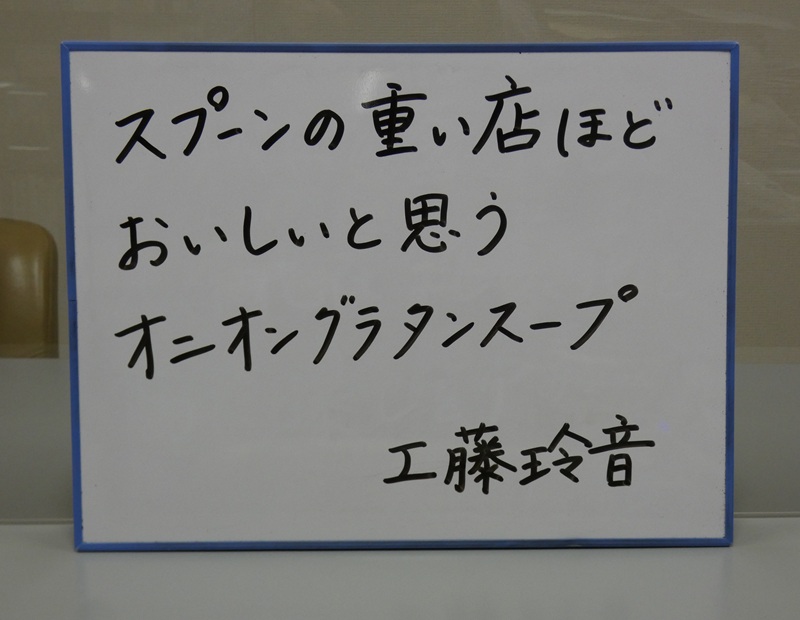 スプーンの重い店ほど
おいしいと思う
オニオングラタンスープ
工藤玲音